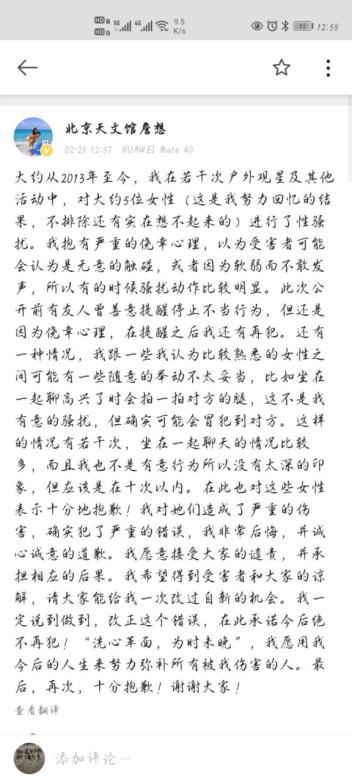 5G 4G 9.5 K/s 92 12:58
北京天文馆詹想
02-25 12:57 HUAWEI Mate 40
大约从2013年至今，我在若干次户外观星及其他
活动中，对大约5位女性（这是我努力回忆的结
果，不排除还有实在想不起来的）进行了性骚
扰。我抱有严重的侥幸心理，以为受害者可能
会认为是无意的触碰，或者因为软弱而不敢发
声，所以有的时候骚扰动作比较明显。此次公
开前有友人曾善意提醒停止不当行为，但还是
因为侥幸心理，在提醒之后我还有再犯。还有
一种情况，我跟一些我认为比较熟悉的女性之
间可能有一些随意的举动不太妥当，比如坐在
一起聊高兴了时会拍一拍对方的腿，这不是我
有意的骚扰，但确实可能会冒犯到对方。这样
的情况有若干次，坐在一起聊天的情况比较
多，而且我也不是有意行为所以没有太深的印
象，但应该是在十次以内。在此也对这些女性
表示十分地抱歉！我对她们造成了严重的伤
害，确实犯了严重的错误，我非常后悔，并诚
心诚意的道歉。我愿意接受大家的谴责，并承
担相应的后果。我希望得到受害者和大家的谅
解，请大家能给我一次改过自新的机会。我一
定说到做到，改正这个错误，在此承诺今后绝
不再犯！“洗心革面，为时未晚”，我愿用我
今后的人生来努力弥补所有被我伤害的人。最
后，再次，十分抱歉！谢谢大家！
查看翻译
添加评论…